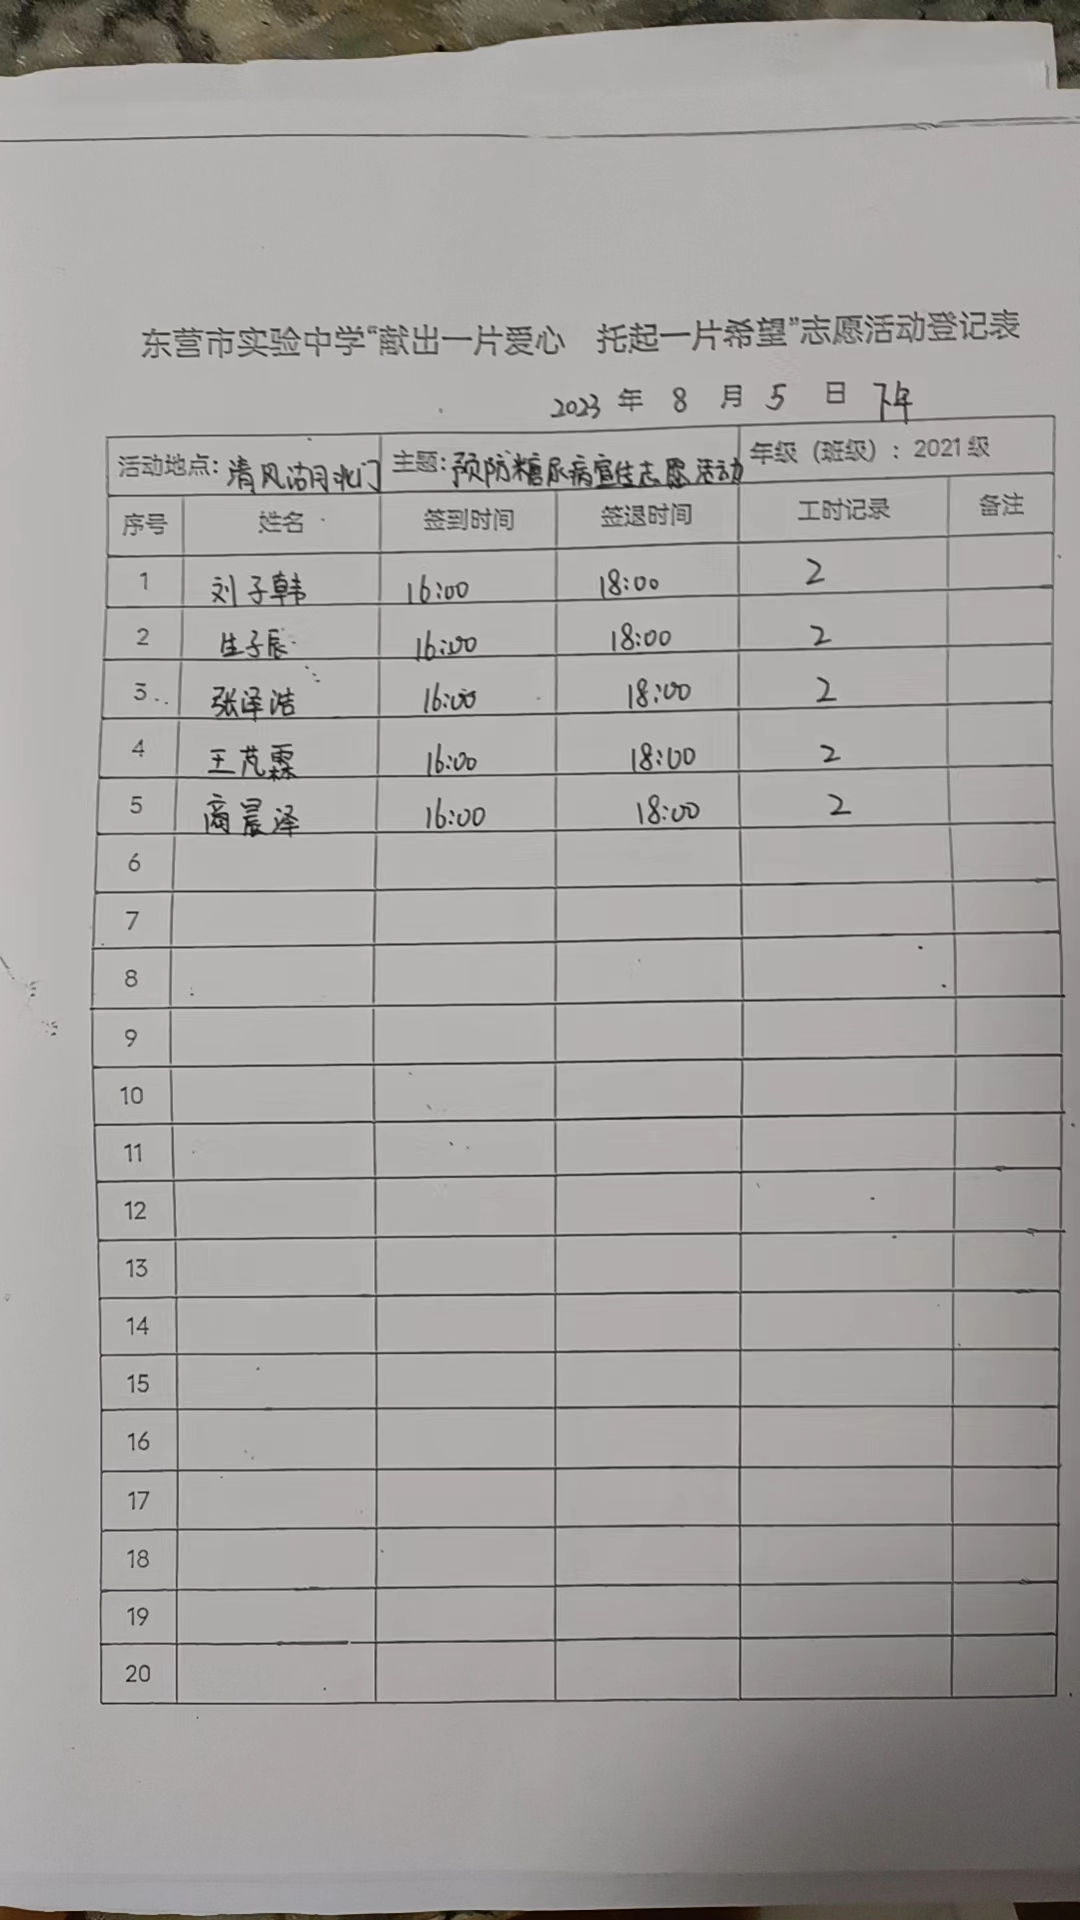 东营市实验中学“献出一片爱心 托起一片希望”志愿活动登记表
2023 年 8 月 5 日 下午
活动地点：清风湖北门 主题：预防糖尿病宣传志愿活动 年级（班级）：2021级
序号 姓名 签到时间 签退时间 工时记录 备注
1 刘子韩 16:00 18:00 2
2 生子辰 16:00 18:00 2
3 张泽浩 16:00 18:00 2
4 王芃霖 16:00 18:00 2
5 商晨泽 16:00 18:00 2
6
7
8
9
10
11
12
13
14
15
16
17
18
19
20